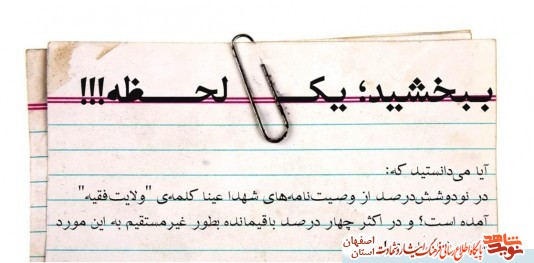 ببخشید، یک لحظه!!!
آیا می‌دانستید که:
در نودوشش‌درصد از وصیت‌نامه‌های شهدا عینا کلمه‌ی "ولایت‌فقیه"
آمده است؟ و در اکثر چهار درصد باقیمانده بطور غیرمستقیم به این مورد
نوید شاهد
پایگاه اطلاع رسانی فرهنگ ایثار و شهادت
استان اصفهان